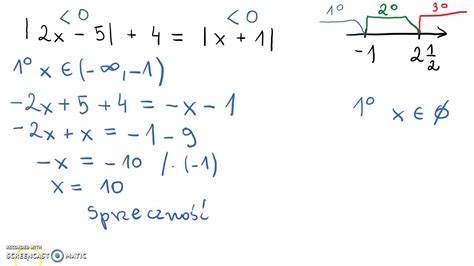 < 0 < 0
| 2x - 5 | + 4 = | x + 1 |
1° x ∈ (-∞, -1)
-2x + 5 + 4 = -x - 1
-2x + x = -1 - 9
-x = -10 /· (-1)
x = 10
Sprzeczność
1° 2° 3°
-1 2 1/2
1° x ∈ ∅
RECORDED WITH
SCREENCAST MATIC